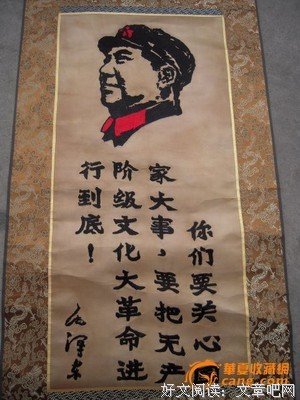 你们要关心
家大事，要把无产
阶级文化大革命进
行到底！
毛泽东
華夏收藏網
cang.com
好文阅读：文章吧网